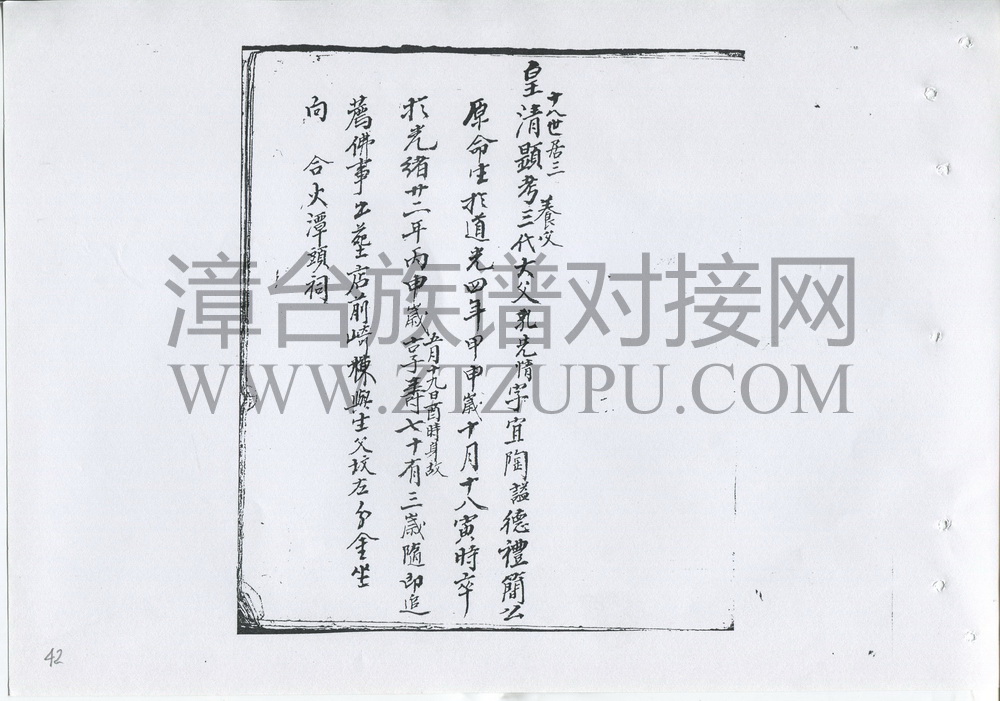 十八世居三 養父
皇清顯考三代大父乳先情字宜陶謚德禮簡公
原命生於道光四年甲申歲十月十八寅時卒
於光緒廿二年丙申歲享壽七十有三歲隨即追
五月十九日酉時身故
薦佛事出塟店前崎棟與生父坟左分金坐
向 合火潭頭祠
漳台族谱对接网
WWW.ZTZUPU.COM
42